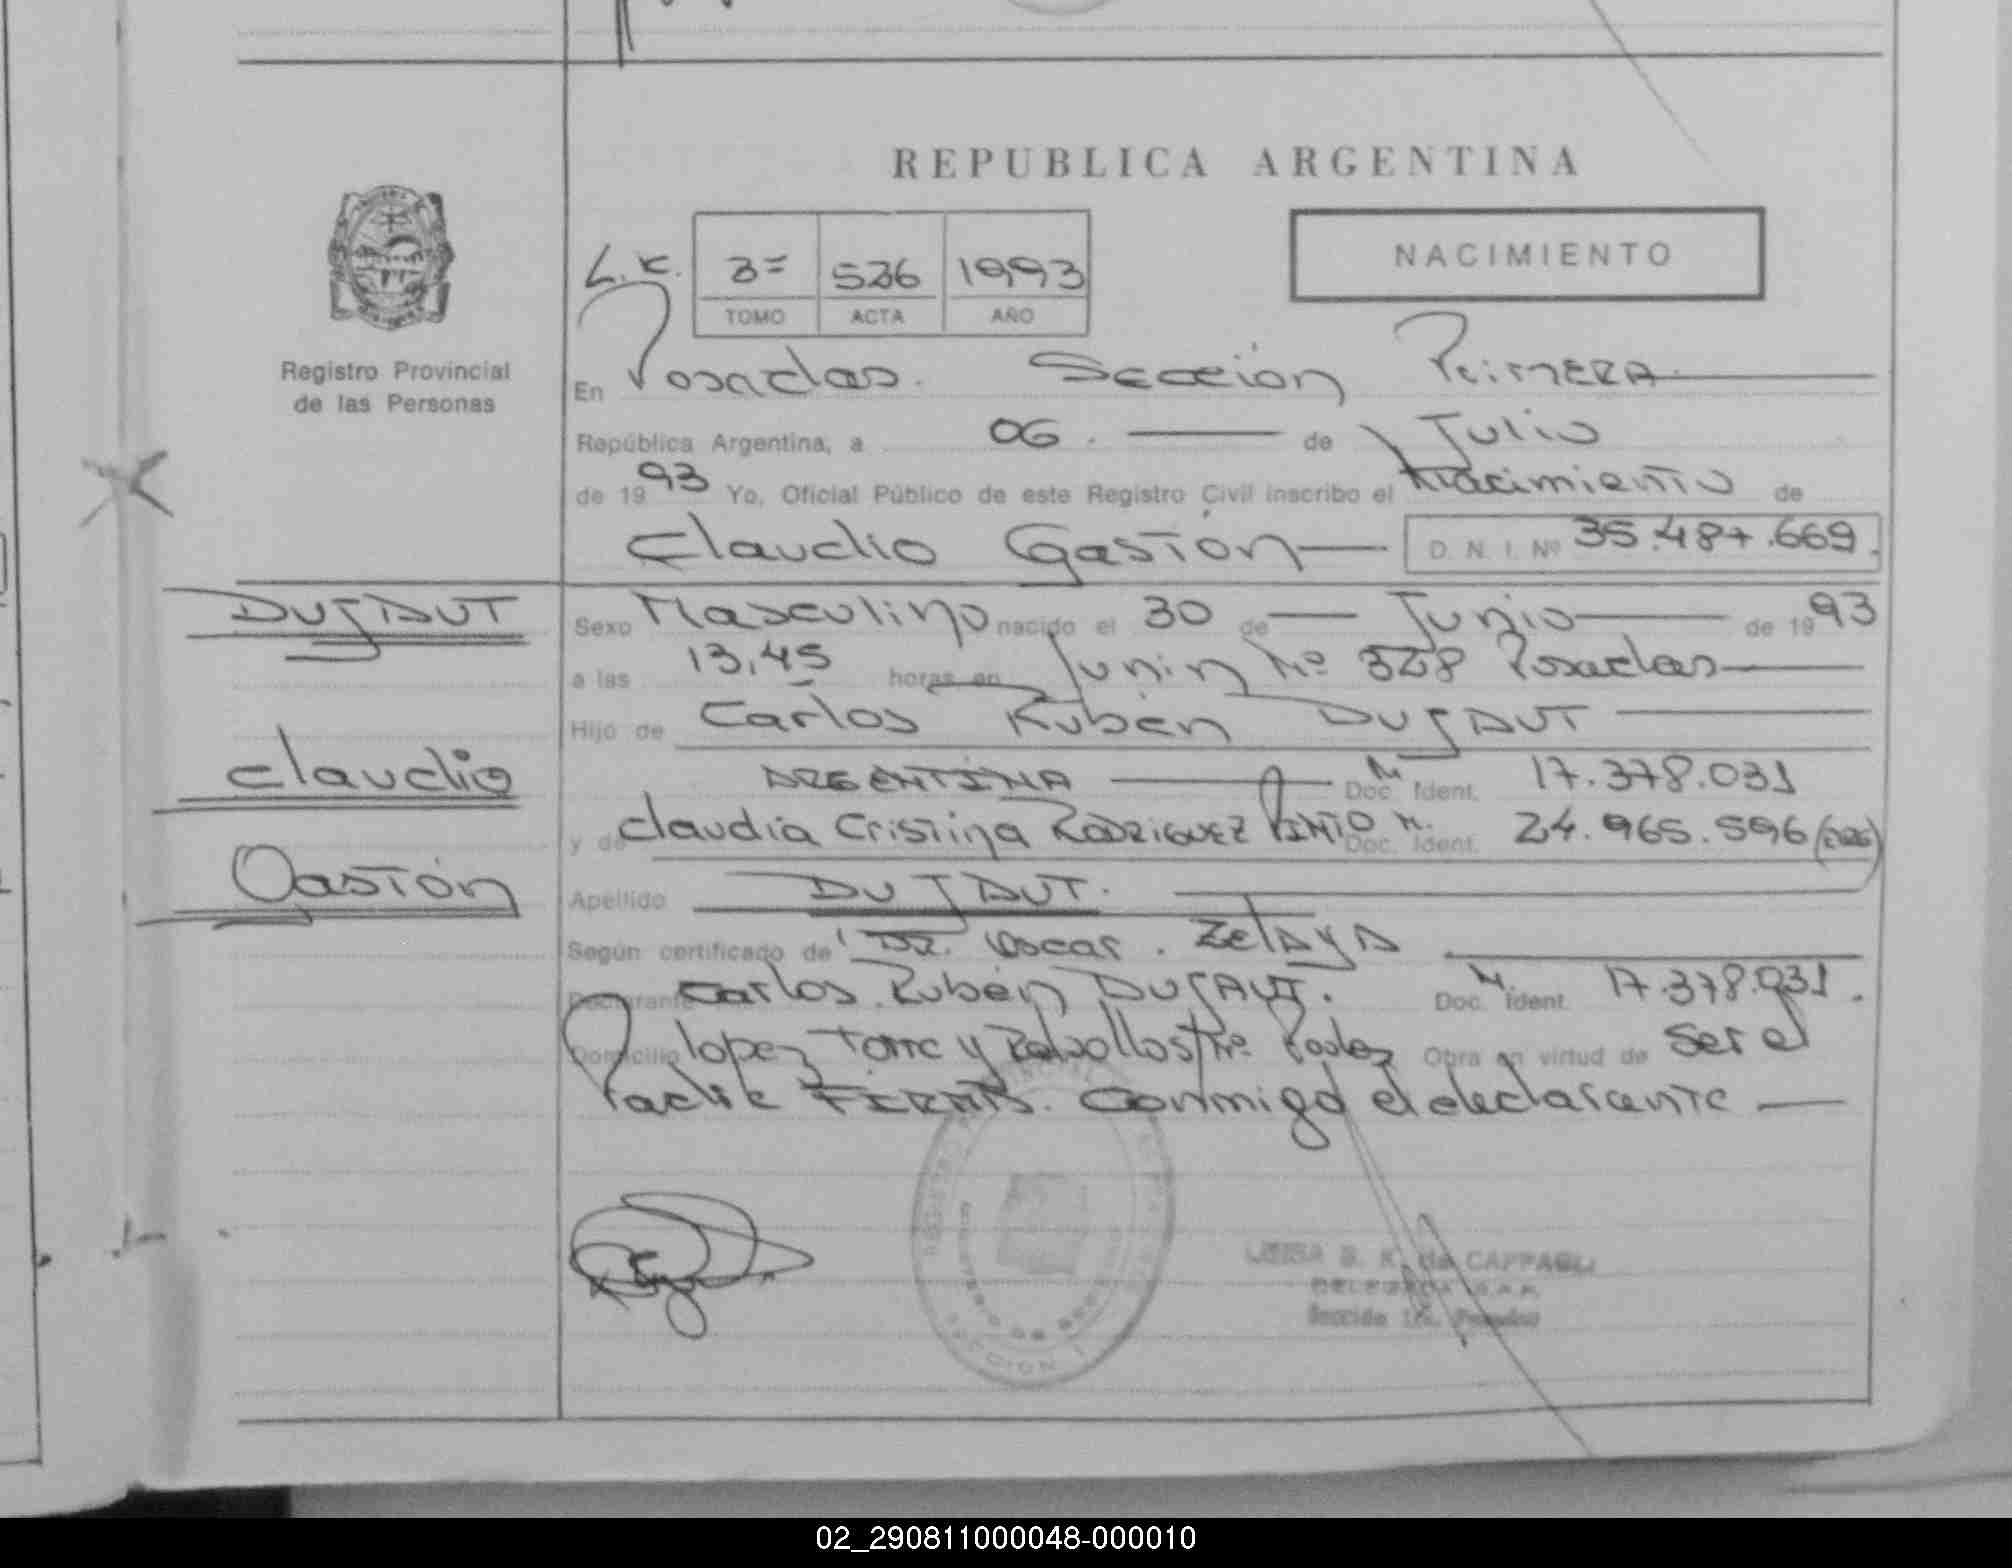 REPUBLICA ARGENTINA
NACIMIENTO
L.C. 3= 536 1993
TOMO ACTA AÑO
Registro Provincial
de las Personas
En Posadas. Sección Primera
República Argentina, a 06. de Julio
de 1993 Yo, Oficial Público de este Registro Civil inscribo el Nacimiento de
Claudio Gastón D. N. I. Nº 35.487.669.
DUJAUT
Sexo Masculino nacido el 30 de Junio de 1993
a las 13,45 horas en Junin Nº Posadas
Hijo de Carlos Rubén DUJAUT
Claudio
ARGENTINA Doc. Ident. 17.378.031
y de Claudia Cristina RODRIGUEZ PINTO Doc. Ident. 24.965.596
Gastón
Apellido DUJAUT.
Según certificado de DR. Oscar. ZELAYA
Declarante Carlos Rubén DUJAUT. Doc. Ident. 17.378.031.
Domicilio Lopez Torre y Nº Obra en virtud de ser el
Padre FIRMA. conmigo el declarante
B. K. de CAPPAGLI
DELEGADA
Sección Posadas
SECCION
02_290811000048-000010